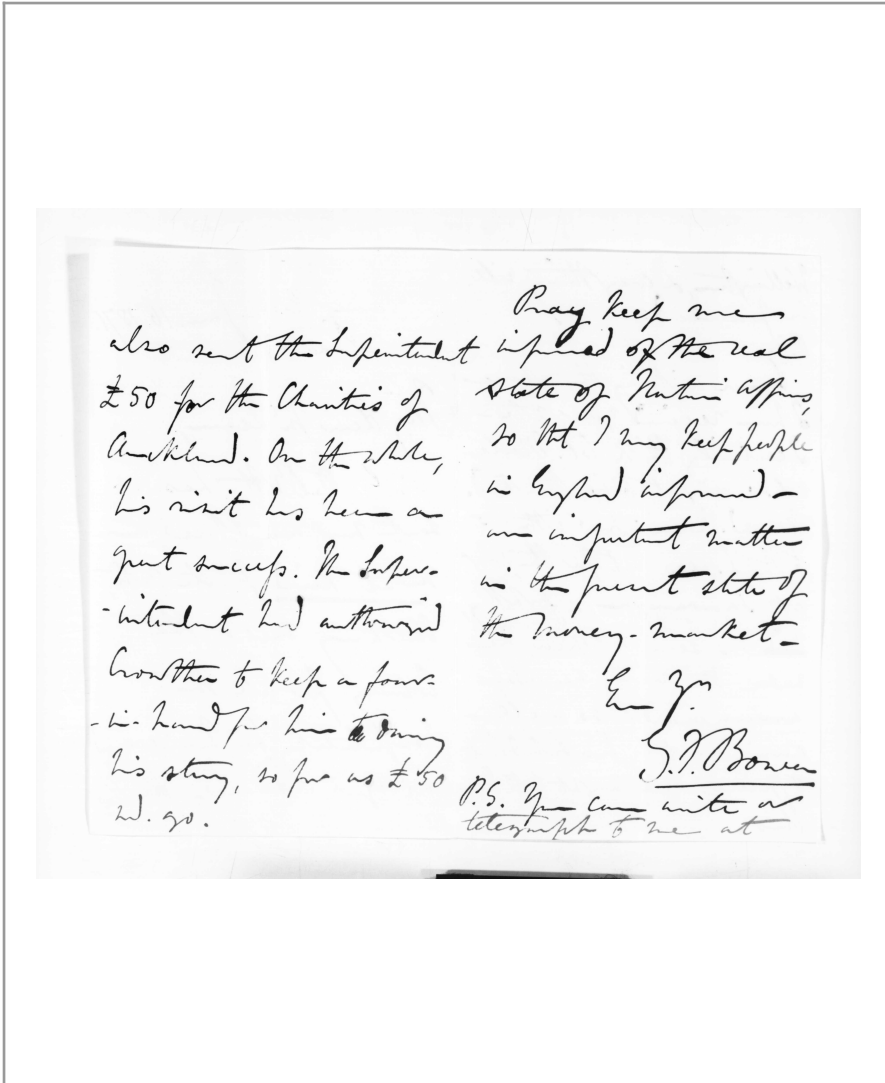 also sent the Superintendent
£50 for the Charities of
Auckland. On the whole,
his visit has been a
great success. The Super-
-intendent had authorized
Crowther to keep a four-
-in-hand for him during
his stay, so far as £50
wd. go.
Pray keep me
informed of the real
state of Native affairs,
so that I may keep people
in England informed -
an important matter
in the present state of
the money-market -
G. F. Bowen
P.S. You can write or
telegraph to me at